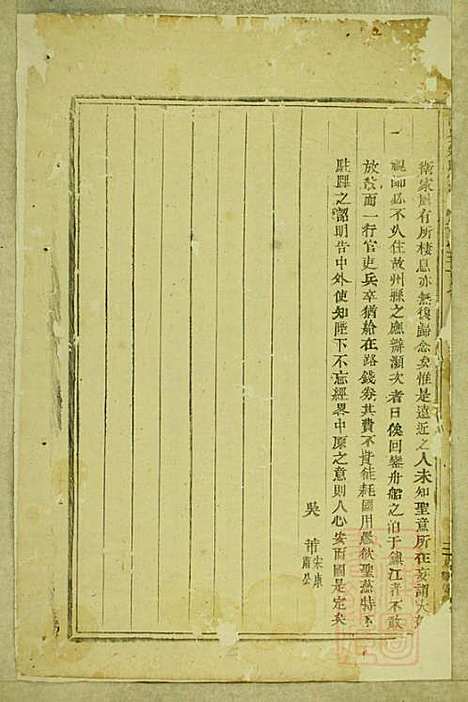 衛家屬有所棲息亦無復歸念矣惟是遠近之人未知聖意所在妄謂大
視師必不久住故州縣之應辦頓次者日俟回鑾舟船之泊于鎮江者不敢
放散而一行官吏兵卒猶給在路錢券其費不貲徒耗國用愚欲聖慈特下
駐蹕之詔明告中外使知陛下不忘經畧中原之意則人心安而國是定矣
吳芾宋康肅公